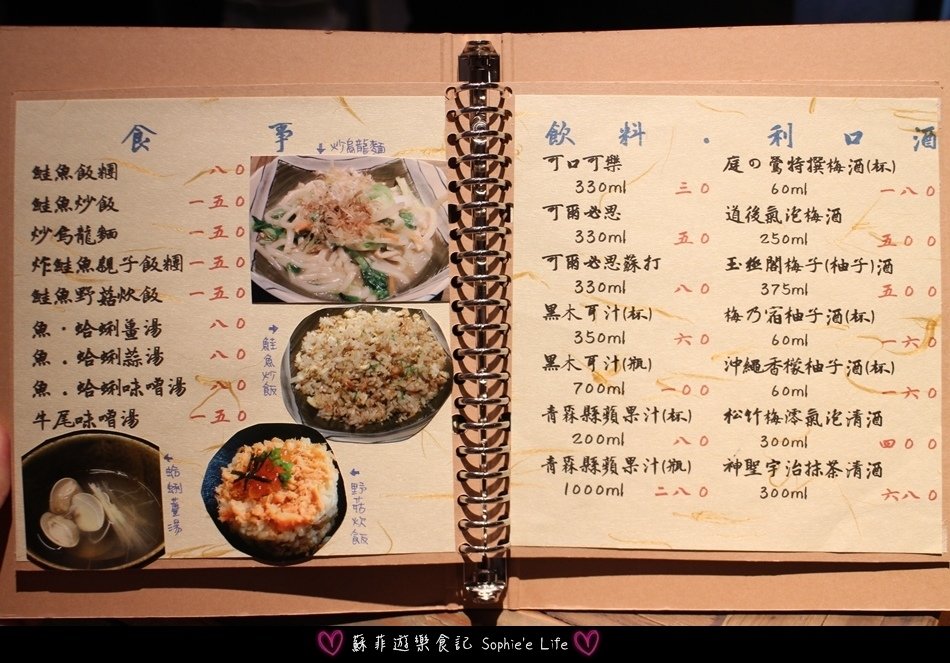 食事
鮭魚飯糰 一八0
鮭魚炒飯 一五0
炒烏龍麵 一五0
炸鮭魚親子飯糰 一五0
鮭魚野菇炊飯 一五0
魚.蛤蜊薑湯 八0
魚.蛤蜊蒜湯 八0
魚.蛤蜊味噌湯 八0
牛尾味噌湯 一五0
↓炒烏龍麵
→鮭魚炒飯
←蛤蜊薑湯
←野菇炊飯
飲料.利口酒
可口可樂
330ml 三0
可爾必思
330ml 五0
可爾必思蘇打
330ml 八0
黑木耳汁(杯)
350ml 六0
黑木耳汁(瓶)
700ml 一00
青森縣蘋果汁(杯)
200ml 八0
青森縣蘋果汁(瓶)
1000ml 二八0
庭の鶯特撰梅酒(杯)
60ml 一八0
道後氣泡梅酒
250ml 五00
玉極閣梅子(柚子)酒
375ml 五00
梅乃宿柚子酒(杯)
60ml 一六0
沖繩香檬柚子酒(杯)
60ml 一六0
松竹梅澪氣泡清酒
300ml 四00
神聖宇治抹茶清酒
300ml 六八0
蘇菲遊樂食記 Sophie'e Life